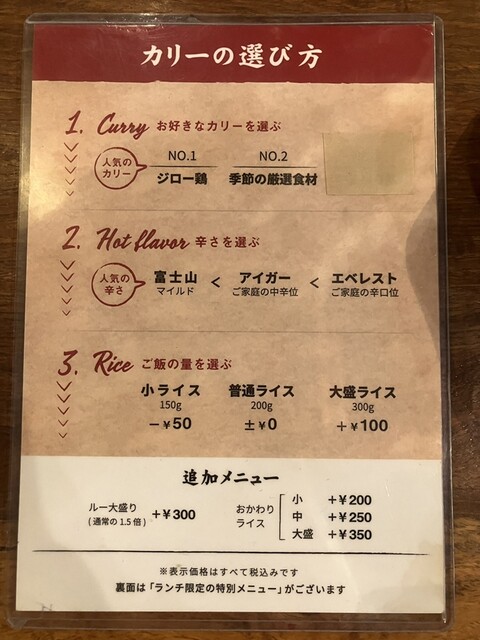 カリーの選び方
1. Curry お好きなカリーを選ぶ
人気の
カリー
NO.1
ジロー鶏
NO.2
季節の厳選食材
2. Hot flavor 辛さを選ぶ
人気の
辛さ
富士山 < アイガー < エベレスト
マイルド ご家庭の中辛位 ご家庭の辛口位
3. Rice ご飯の量を選ぶ
小ライス 普通ライス 大盛ライス
150g 200g 300g
－¥50 ±¥0 ＋¥100
追加メニュー
ルー大盛り
(通常の1.5倍)
+¥300
おかわり
ライス
小 +¥200
中 +¥250
大盛 +¥350
※表示価格はすべて税込みです
裏面は「ランチ限定の特別メニュー」がございます